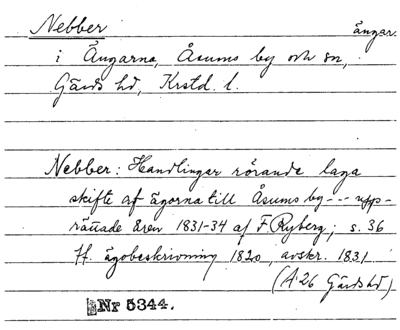 Nebber ängar.
i Ängarna, Åsums by och sn,
Gärds hd, Krstd. l.
Nebber: Handlingar rörande laga
skifte af ägorna till Åsums by --- upp-
rättade åren 1831-34 af F. Ryberg; s. 36
ff. ägobeskrivning 1820, avskr. 1831
(A: 26 Gärds hd)
Nr 5344.